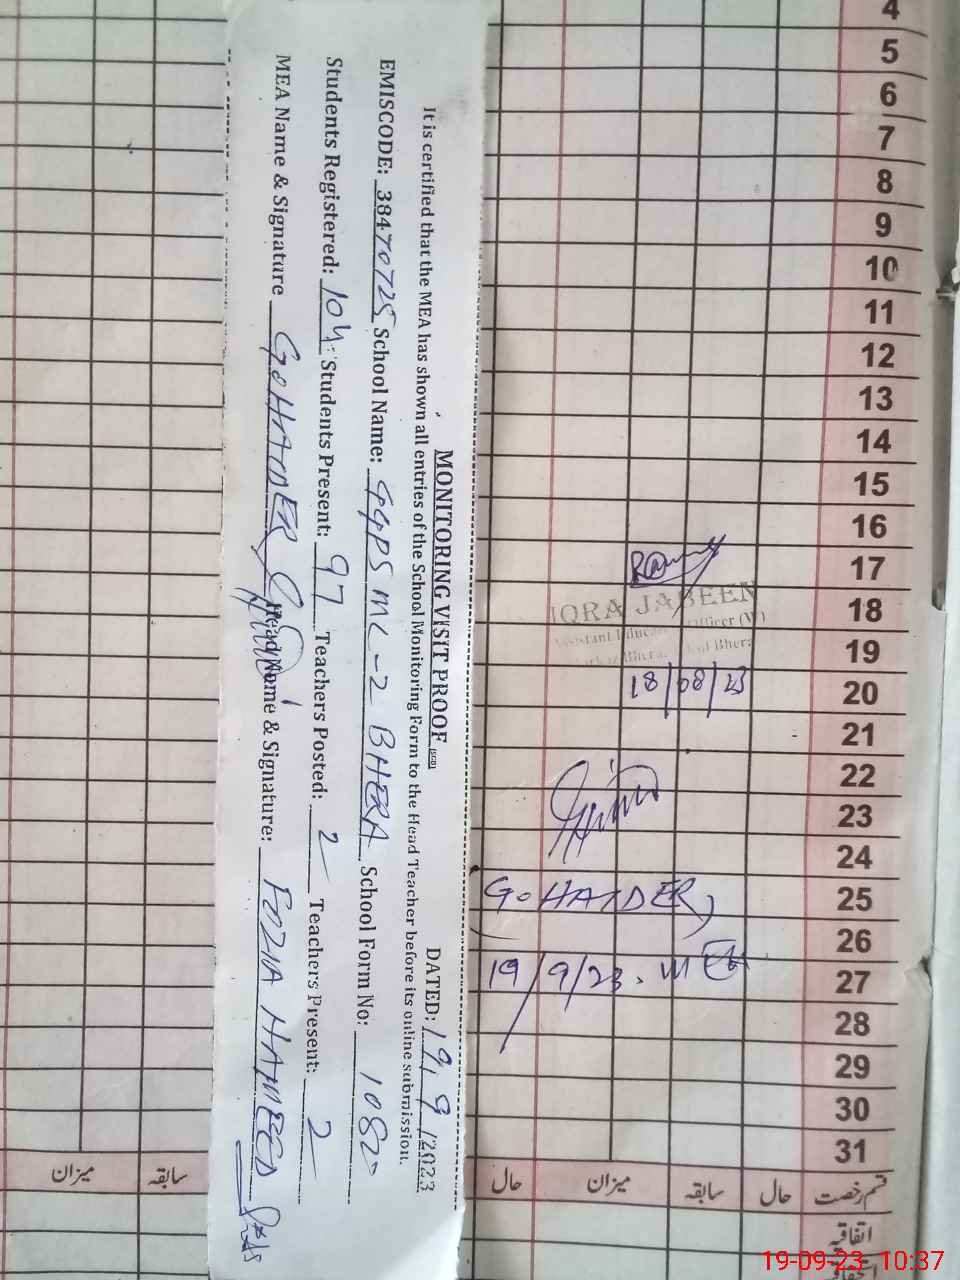 MONITORING VISIT PROOF DATED: 19/9/2023
It is certified that the MEA has shown all entries of the School Monitoring Form to the Head Teacher before its online submission.
EMISCODE: 38470725 School Name: GGPS MC-2 BHERA School Form No: 1082
Students Registered: 104 Students Present: 97 Teachers Posted: 2 Teachers Present: 2
MEA Name & Signature G. HAIDER Head Name & Signature: FOZIA HAMEED
4
5
6
7
8
9
10
11
12
13
14
15
16
17
18
19
20
21
22
23
24
25
26
27
28
29
30
31
IQRA JABEEN
Assistant Education Officer (W)
Markaz Bhera Bhera
18/08/23
G. HAIDER
19/9/23. MEA
میزان سابقہ حال میزان سابقہ حال قسم رخصت
اتفاقیہ
19-09-23 10:37